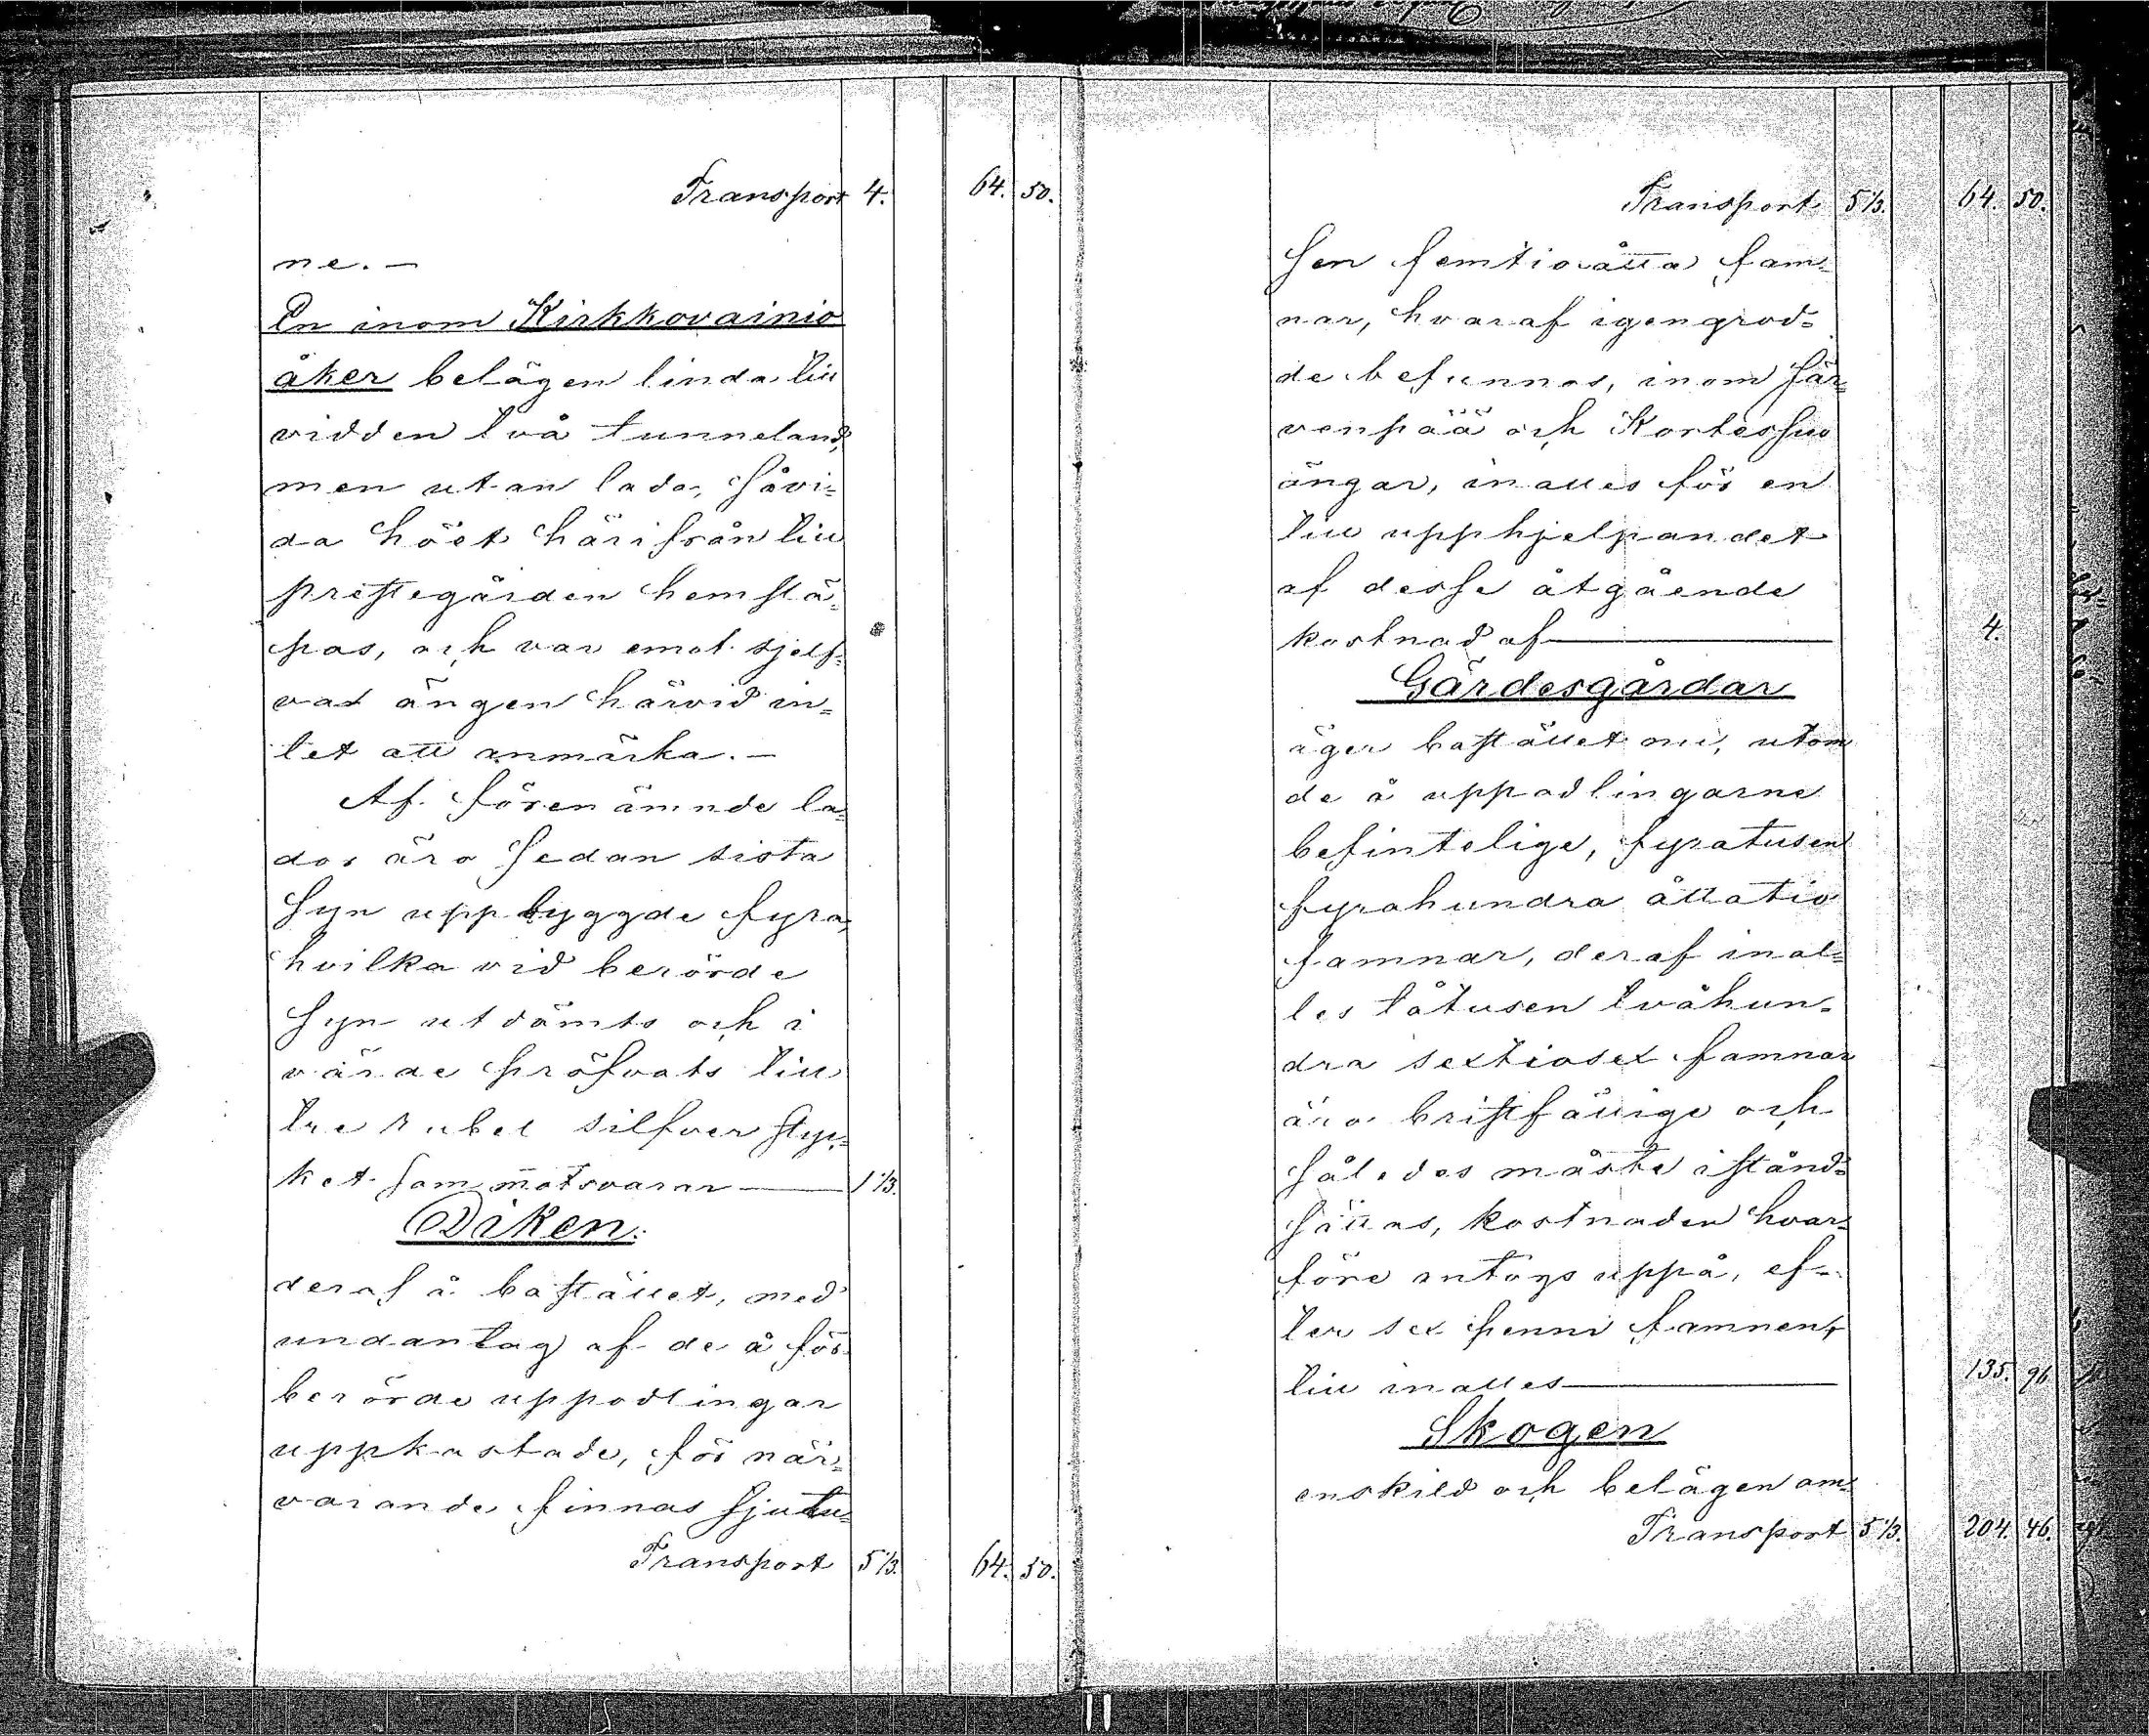 Transport 4. 64. 50.
ne. —
En inom Kirkkovainio
åker belägen linda till
vidden två tunneland,
men utan lada, såvi-
da höet härifrån till
prestegården hemslä-
pas, och var emot sjelf-
va ängen härvid in-
tet att anmärka. —
Af förenämnde la-
dor äro sedan sista
syn uppbyggde fyra,
hvilka vid berörde
syn utdömts och i
värde pröfvats till
tre rubel silfver styc-
ket som motsvarar — 1 1/3.
Diken.
deraf å bostället, med
undantag af de å för-
berörde uppodlingar
uppkastade, för när-
varande finnas sjutu-
Transport 5 1/3. 64. 50.
Transport 5 1/3. 64. 50.
sen femtioåtta fam-
nar, hvaraf igengrod-
de befunnos, inom Jär-
venpää och Kortessuo
ängar, inalles för en
till upphjelpandet
af desse åtgående
kostnad af — 4.
Gärdesgårdar
äger bostället nu, utom
de å uppodlingarne
befintelige, fyratusen
fyrahundra åttatio
famnar, deraf inal-
les tåtusen tvåhun-
dra sextiosex famnar
äro bristfällige och
således måste istånd-
sättas, kostnaden hvar-
före antogs uppå, ef-
ter sex penni famnen,
till inalles — 135. 96.
Skogen
enskild och belägen om-
Transport 5 1/3. 204. 46.